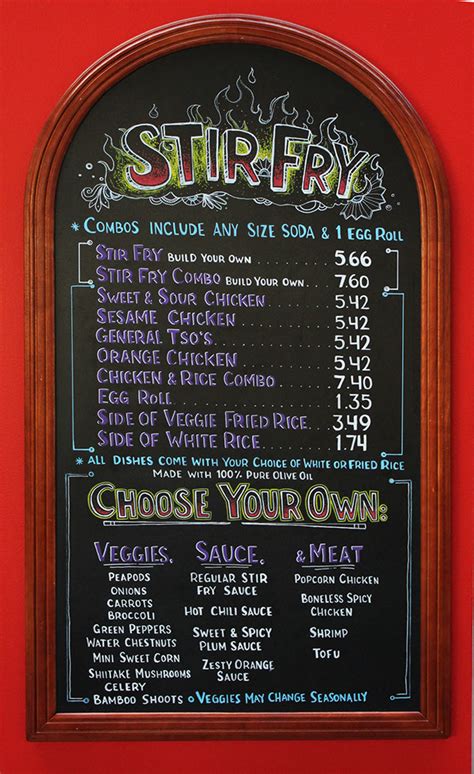 STIR FRY
* COMBOS INCLUDE ANY SIZE SODA & 1 EGG ROLL
STIR FRY BUILD YOUR OWN ........ 5.66
STIR FRY COMBO BUILD YOUR OWN .... 7.60
SWEET & SOUR CHICKEN ........ 5.42
SESAME CHICKEN ........ 5.42
GENERAL TSO'S ........ 5.42
ORANGE CHICKEN ........ 5.42
CHICKEN & RICE COMBO ........ 7.40
EGG ROLL ........ 1.35
SIDE OF VEGGIE FRIED RICE ... 3.49
SIDE OF WHITE RICE ........ 1.74
* ALL DISHES COME WITH YOUR CHOICE OF WHITE OR FRIED RICE
MADE WITH 100% PURE OLIVE OIL
CHOOSE YOUR OWN:
VEGGIES,
PEAPODS
ONIONS
CARROTS
BROCCOLI
GREEN PEPPERS
WATER CHESTNUTS
MINI SWEET CORN
SHIITAKE MUSHROOMS
CELERY
BAMBOO SHOOTS
SAUCE,
REGULAR STIR
FRY SAUCE
HOT CHILI SAUCE
SWEET & SPICY
PLUM SAUCE
ZESTY ORANGE
SAUCE
& MEAT
POPCORN CHICKEN
BONELESS SPICY
CHICKEN
SHRIMP
TOFU
* VEGGIES MAY CHANGE SEASONALLY